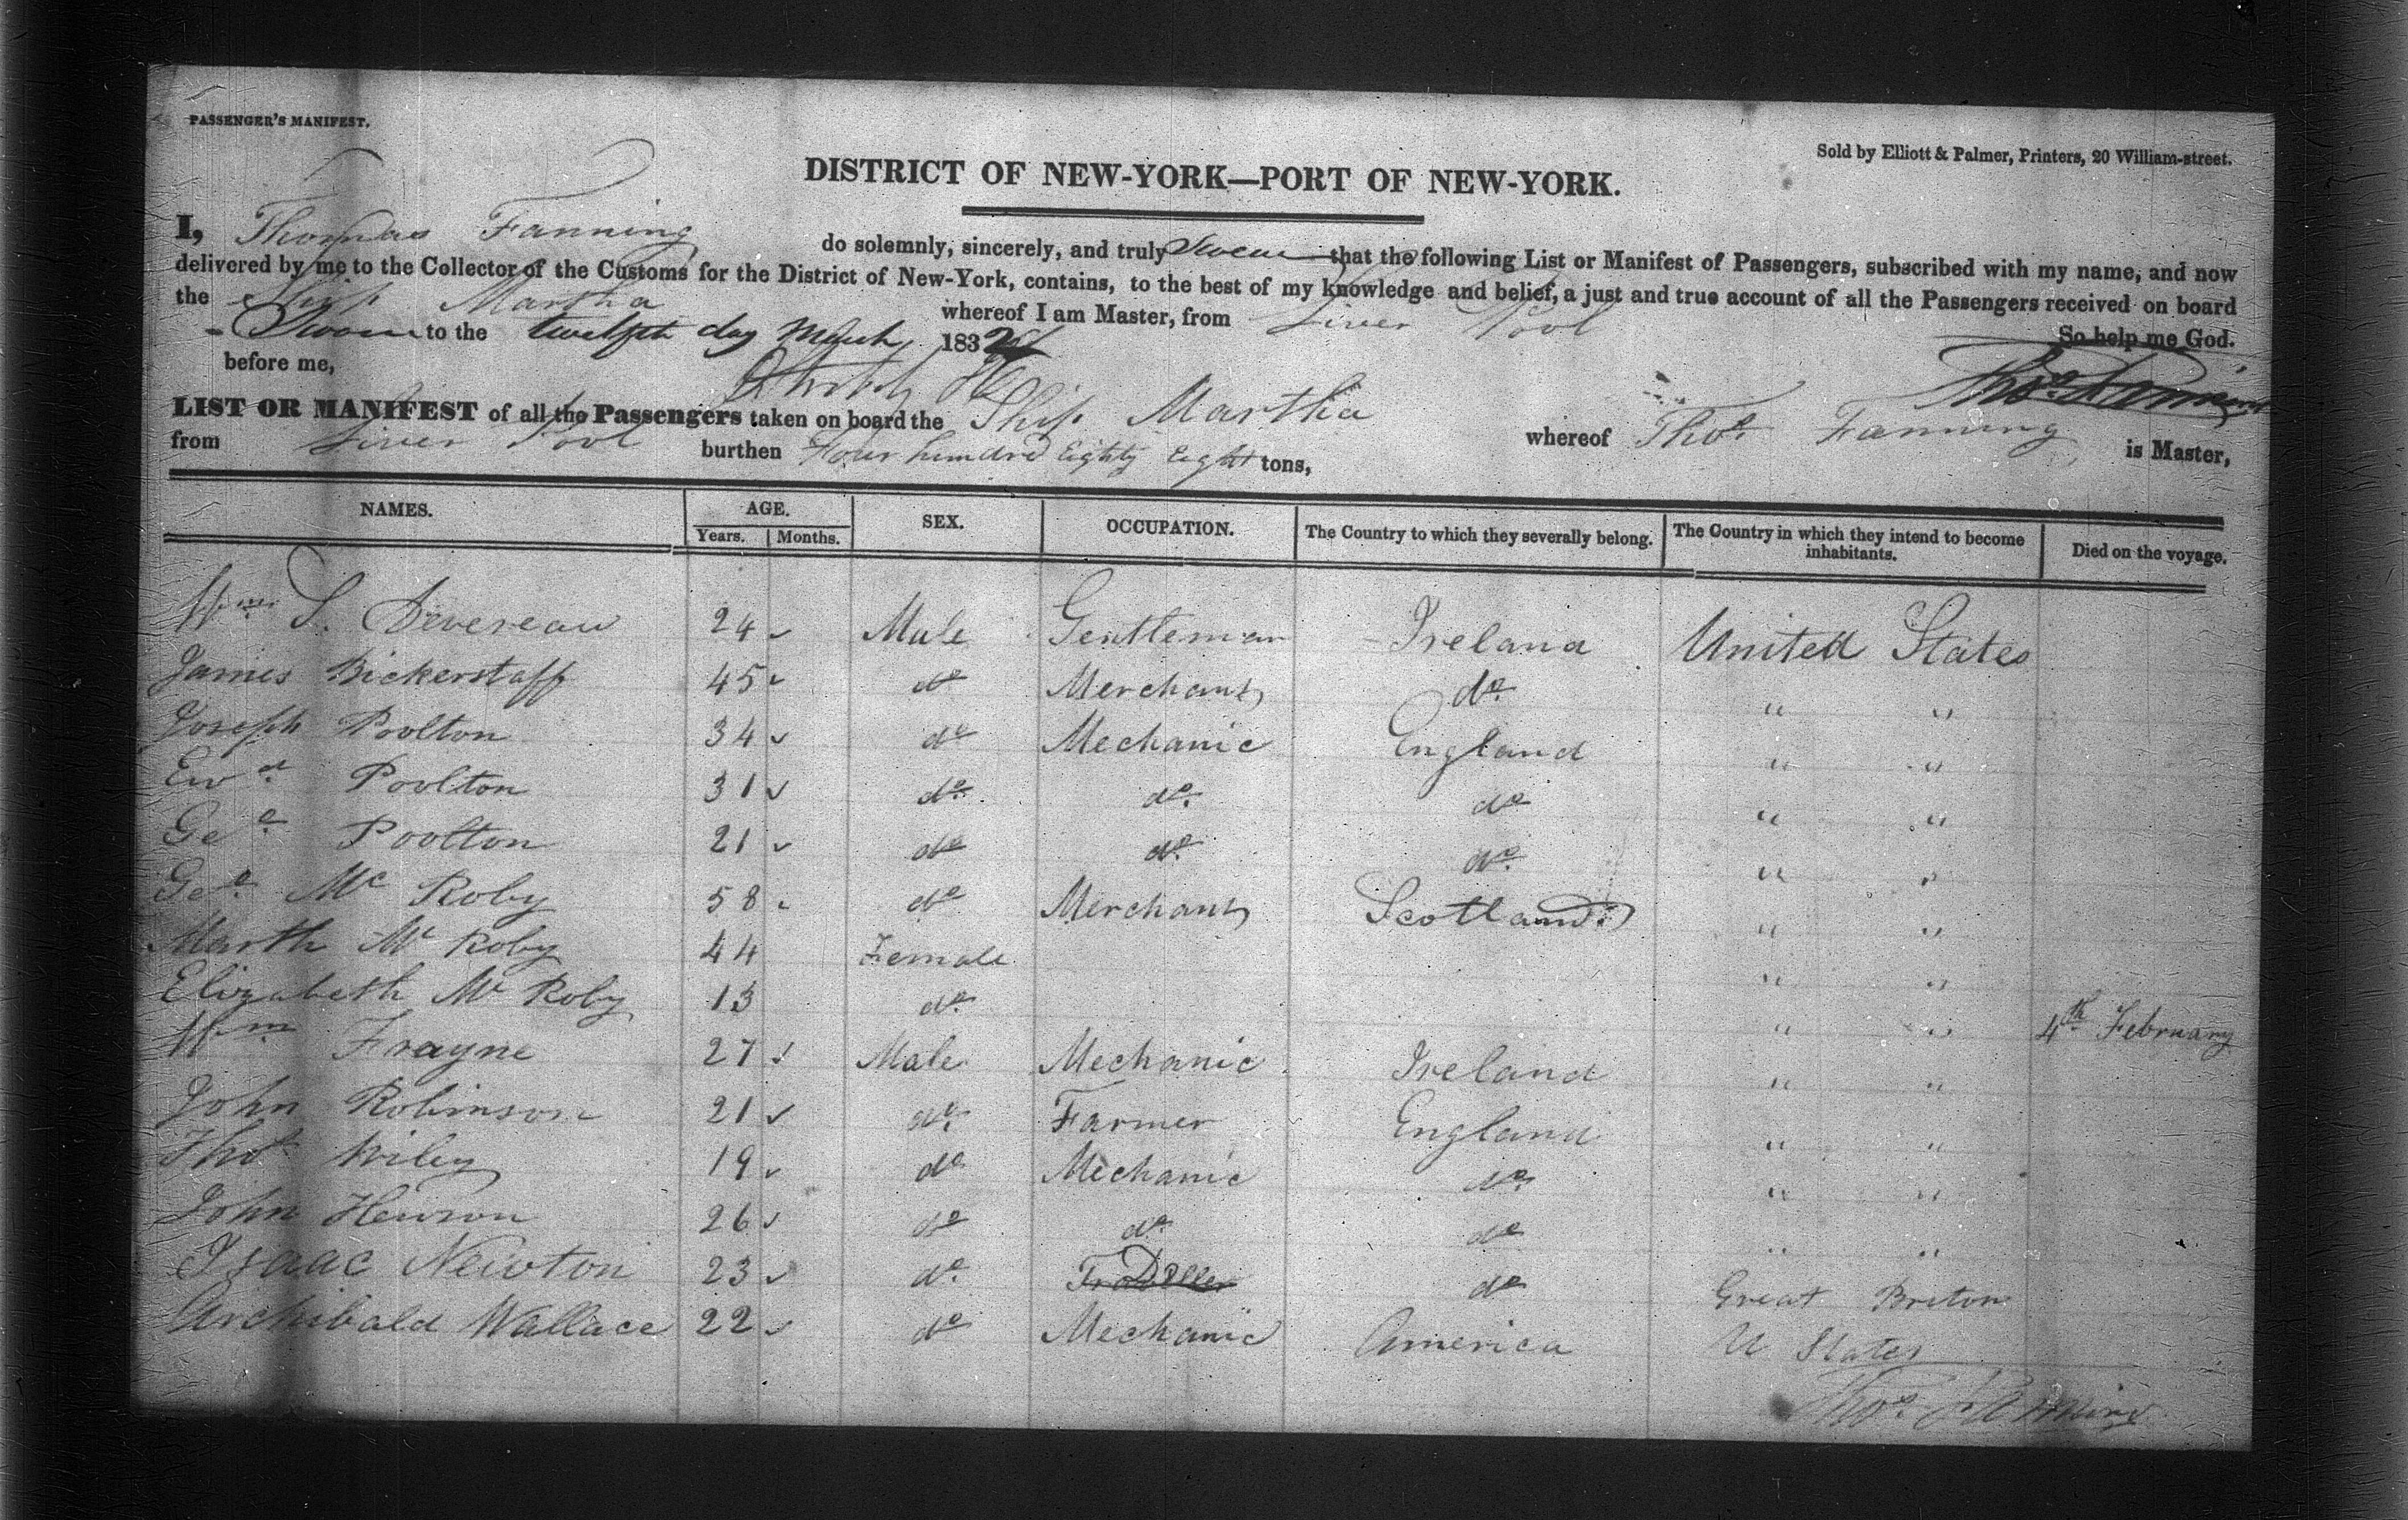 PASSENGER'S MANIFEST.
Sold by Elliott & Palmer, Printers, 20 William-street.
DISTRICT OF NEW-YORK—PORT OF NEW-YORK.
I, Thomas Fanning do solemnly, sincerely, and truly Swear that the following List or Manifest of Passengers, subscribed with my name, and now
delivered by me to the Collector of the Customs for the District of New-York, contains, to the best of my knowledge and belief, a just and true account of all the Passengers received on board
the Ship Martha whereof I am Master, from Liver Pool
So help me God.
Sworn to the twelfth day March 183
before me,
Thos Fanning
LIST OR MANIFEST of all the Passengers taken on board the Ship Martha whereof Thos Fanning is Master,
from Liver Pool burthen Four hundred Eighty Eight tons,
NAMES. AGE. SEX. OCCUPATION. The Country to which they severally belong. The Country in which they intend to become inhabitants. Died on the voyage.
Years. Months.
Wm S. Devereau 24 Male Gentleman Ireland United States
James Bickerstaff 45 do Merchant do " "
Joseph Poolton 34 do Mechanic England " "
Ewd Poolton 31 do do do " "
Geo Poolton 21 do do do " "
Geo Mc Roby 58 do Merchant Scotland " "
Marth Mc Roby 44 Female " "
Elizabeth Mc Roby 13 do " " 4th February
Wm Frayne 27 Male Mechanic Ireland " "
John Robinson 21 do Farmer England " "
Thos Wiley 19 do Mechanic do " "
John Hewson 26 do do do " "
Isaac Newton 23 do do Great Breton
Archibald Wallace 22 do Mechanic America U States
Thos Fanning